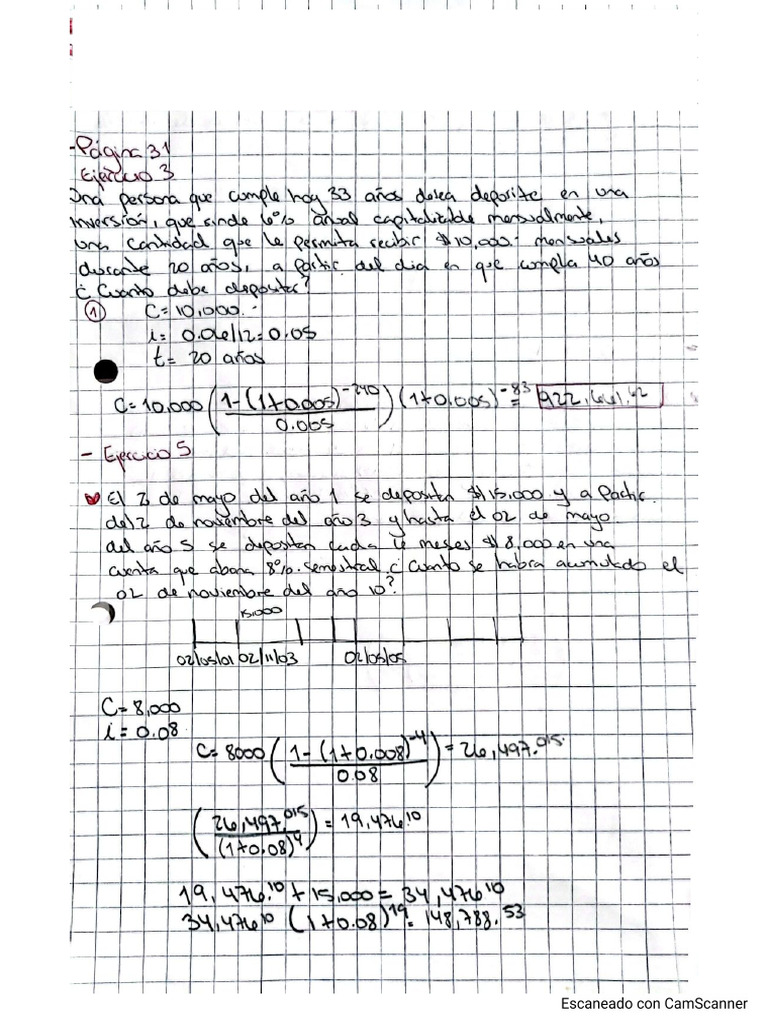 -Página 31
Ejercicio 3
Una persona que cumple hoy 33 años desea deposite en una
inversión, que rinde 6% anual capitalizable mensualmente,
una cantidad que le permita recibir $10,000.- mensuales
durante 20 años, a partir del dia en que cumpla 40 años
¿ Cuanto debe depositar?
① C=10,000.-
i= 0.06/12=0.05
t= 20 años
C=10,000 (1-(1+0.005)^-240 / 0.005) (1+0.005)^-83 = 922,661.42
- Ejercicio 5
El 2 de mayo del año 1 se depositan $15,000 y a partir
del 2 de noviembre del año 3 y hasta el 02 de mayo
del año 5 se depositan cada 6 meses $8,000 en una
cuenta que abona 8% semestral ¿ Cuanto se habra acumulado el
02 de noviembre del año 10?
15,000
02/05/01 02/11/03 02/05/05
C=8,000
i=0.08
C= 8000 (1-(1+0.008)^-4 / 0.08) = 26,497.015
(26,497.015 / (1+0.08)^4) = 19,476.10
19,476.10 + 15,000 = 34,476.10
34,476.10 (1+0.08)^19 = 148,788.53
Escaneado con CamScanner